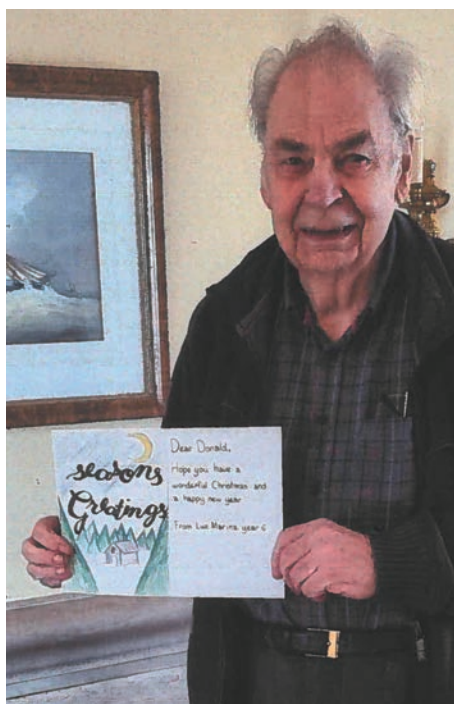 seasons
Greetings
Dear Donald,
Hope you have a
wonderful Christmas and
a happy new year
From Luc Marina year 6